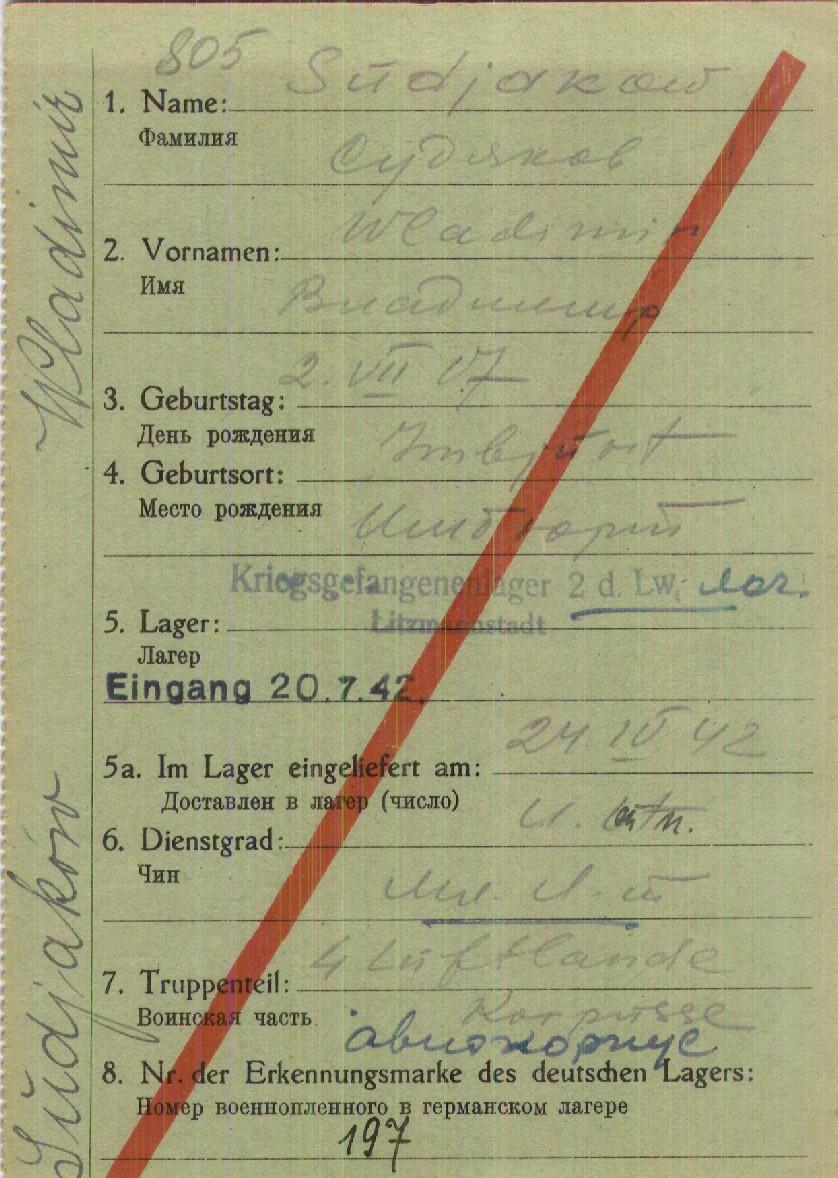 805 Südjakow
1. Name:
Фамилия
Судяков
Wladimir
2. Vornamen:
Имя
Владимир
2. VII 07
3. Geburtstag:
День рождения
4. Geburtsort:
Место рождения
Kriegsgefangenenlager 2 d. Lw. лаг.
Litzmannstadt
5. Lager:
Лагерь
Eingang 20.7.42.
24 IV 42
5a. Im Lager eingeliefert am:
Доставлен в лагерь (число)
6. Dienstgrad:
Чин
4 Luftlande
7. Truppenteil:
Korpusse
Воинская часть
авиокорпус
8. Nr. der Erkennungsmarke des deutschen Lagers:
Номер военнопленного в германском лагере
197
Südjaków Wladimir